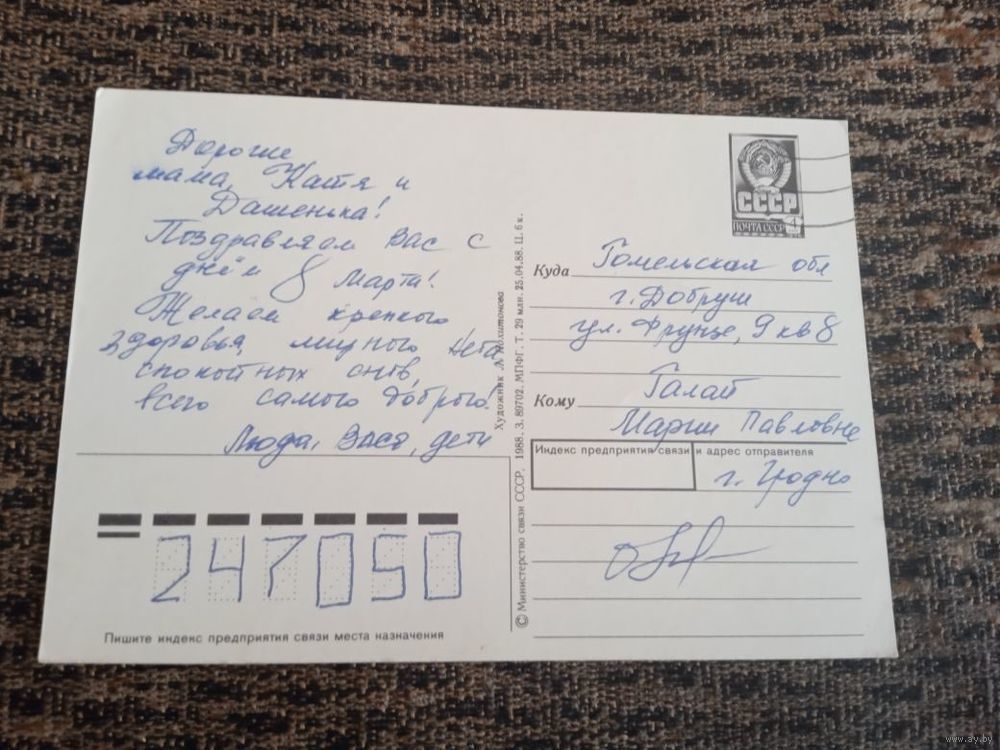 Дорогие
мама, Катя и
Дашенька!
Поздравляем Вас с
днём 8 Марта!
Желаем крепкого
здоровья, мирного неба,
спокойных снов,
всего самого доброго.
Люда, Вася, дети
247050
Пишите индекс предприятия связи места назначения
© Министерство связи СССР, 1988. З. 89702. МПФГ. Т. 29 млн. 25.04.88. Ц. 6 к.
Художник Л. Похитонова
СССР
ПОЧТА СССР
Куда Гомельская обл
г. Добруш
ул. Фрунзе, 9 кв 8
Кому Галай
Марии Павловне
Индекс предприятия связи и адрес отправителя
г. Гродно
www.ay.by